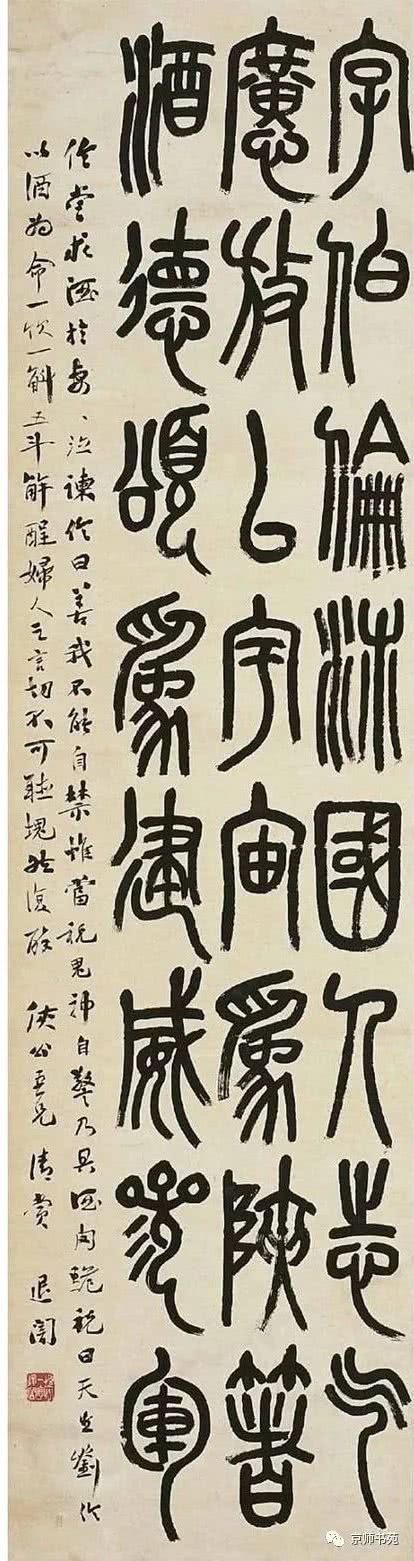 字伯倫沛國人志氣
懬放以宇宙為陝著
酒德頌為建威參軍
伶嘗求酒於妻、泣諫伶曰善我不能自禁惟當祝鬼神自誓乃具酒肉跪祝曰天生劉伶
以酒為命一飲一斛五斗解酲婦人之言切不可聽塊然復醉 俠公兄清賞 退闇
京师书苑